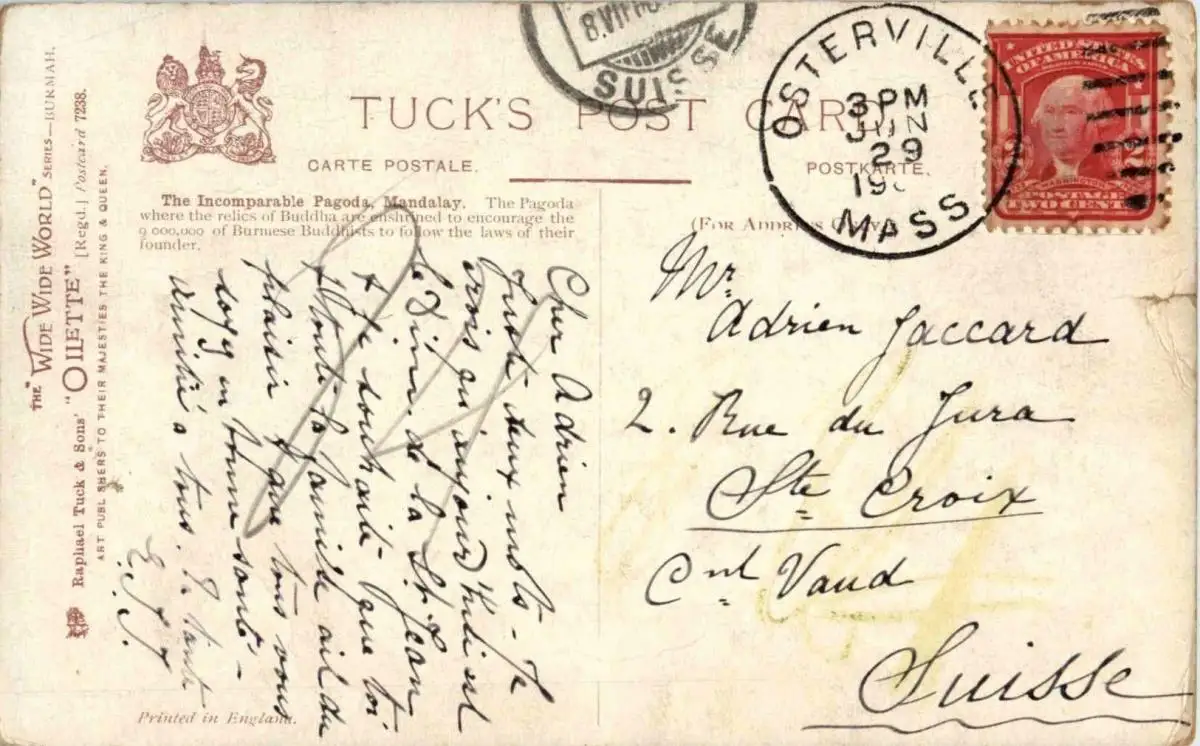 THE "WIDE WIDE WORLD" SERIES—BURMAH.
Raphael Tuck & Sons' "OILETTE" [Regd.] Postcard 7238.
ART PUBLISHERS TO THEIR MAJESTIES THE KING & QUEEN.
TUCK'S POST CARD
CARTE POSTALE.
POSTKARTE.
The Incomparable Pagoda, Mandalay. The Pagoda
where the relics of Buddha are enshrined to encourage the
9 000,000 of Burmese Buddhists to follow the laws of their
founder.
(FOR ADDRESS ONLY)
8.VII
SUISSE
OSTERVILLE
3 PM
JUN
29
MASS
UNITED STATES
OF AMERICA
WASHINGTON
POSTAGE
2 2
TWO CENTS
Cher Adrien
Juste deux mots - Je
crois qu'aujourd'hui est
le Dim. de la St. Jean
& Je souhaite que toi
& toute la famille ait du
plaisir & que tous vous
soyez en bonne santé -
Amitiés à tous. Ta tante
E. J. J.
Mr
Adrien Jaccard
2. Rue du Jura
Ste Croix
Cnt Vaud
Suisse
Printed in England.